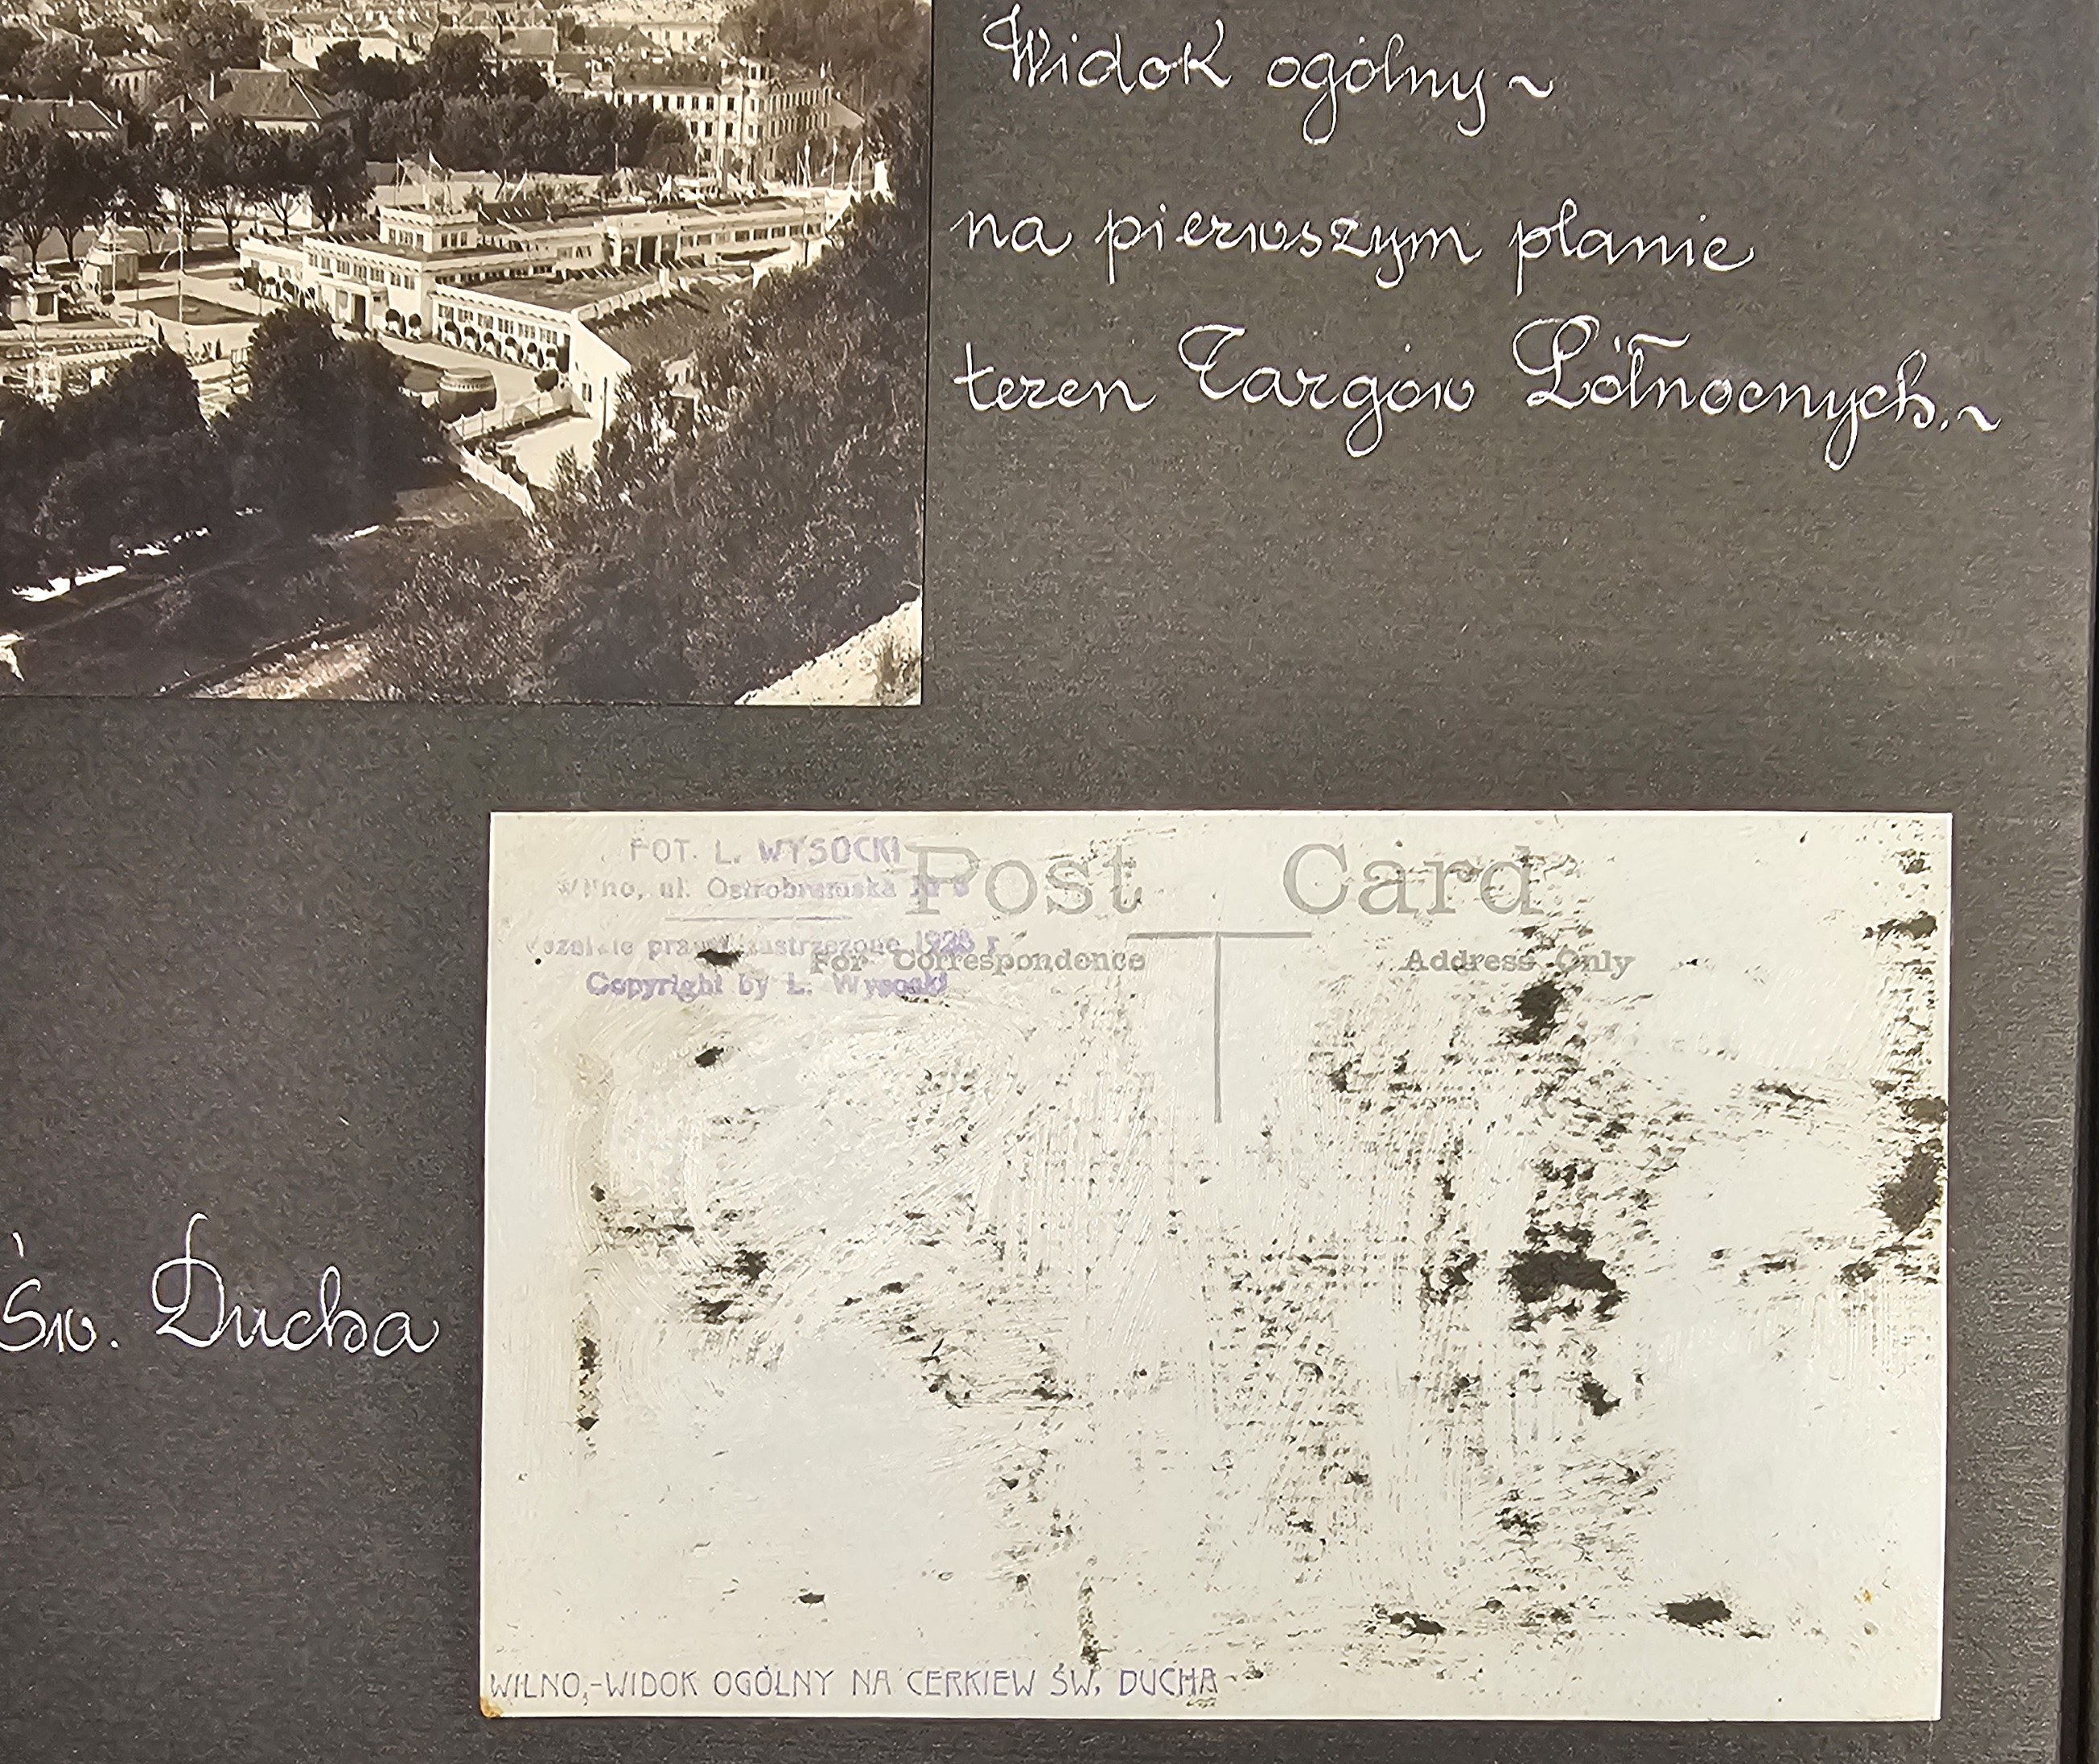 Widok ogólny ~
na pierwszym planie
teren Targów Północnych. ~
FOT. L. WYSOCKI
Wilno, ul. Ostrobramska Nr 8
Post Card
prawa zastrzeżone 1928 r
For Correspondence
Address Only
Copyright by L. Wysocki
Św. Ducha
WILNO,-WIDOK OGÓLNY NA CERKIEW ŚW, DUCHA